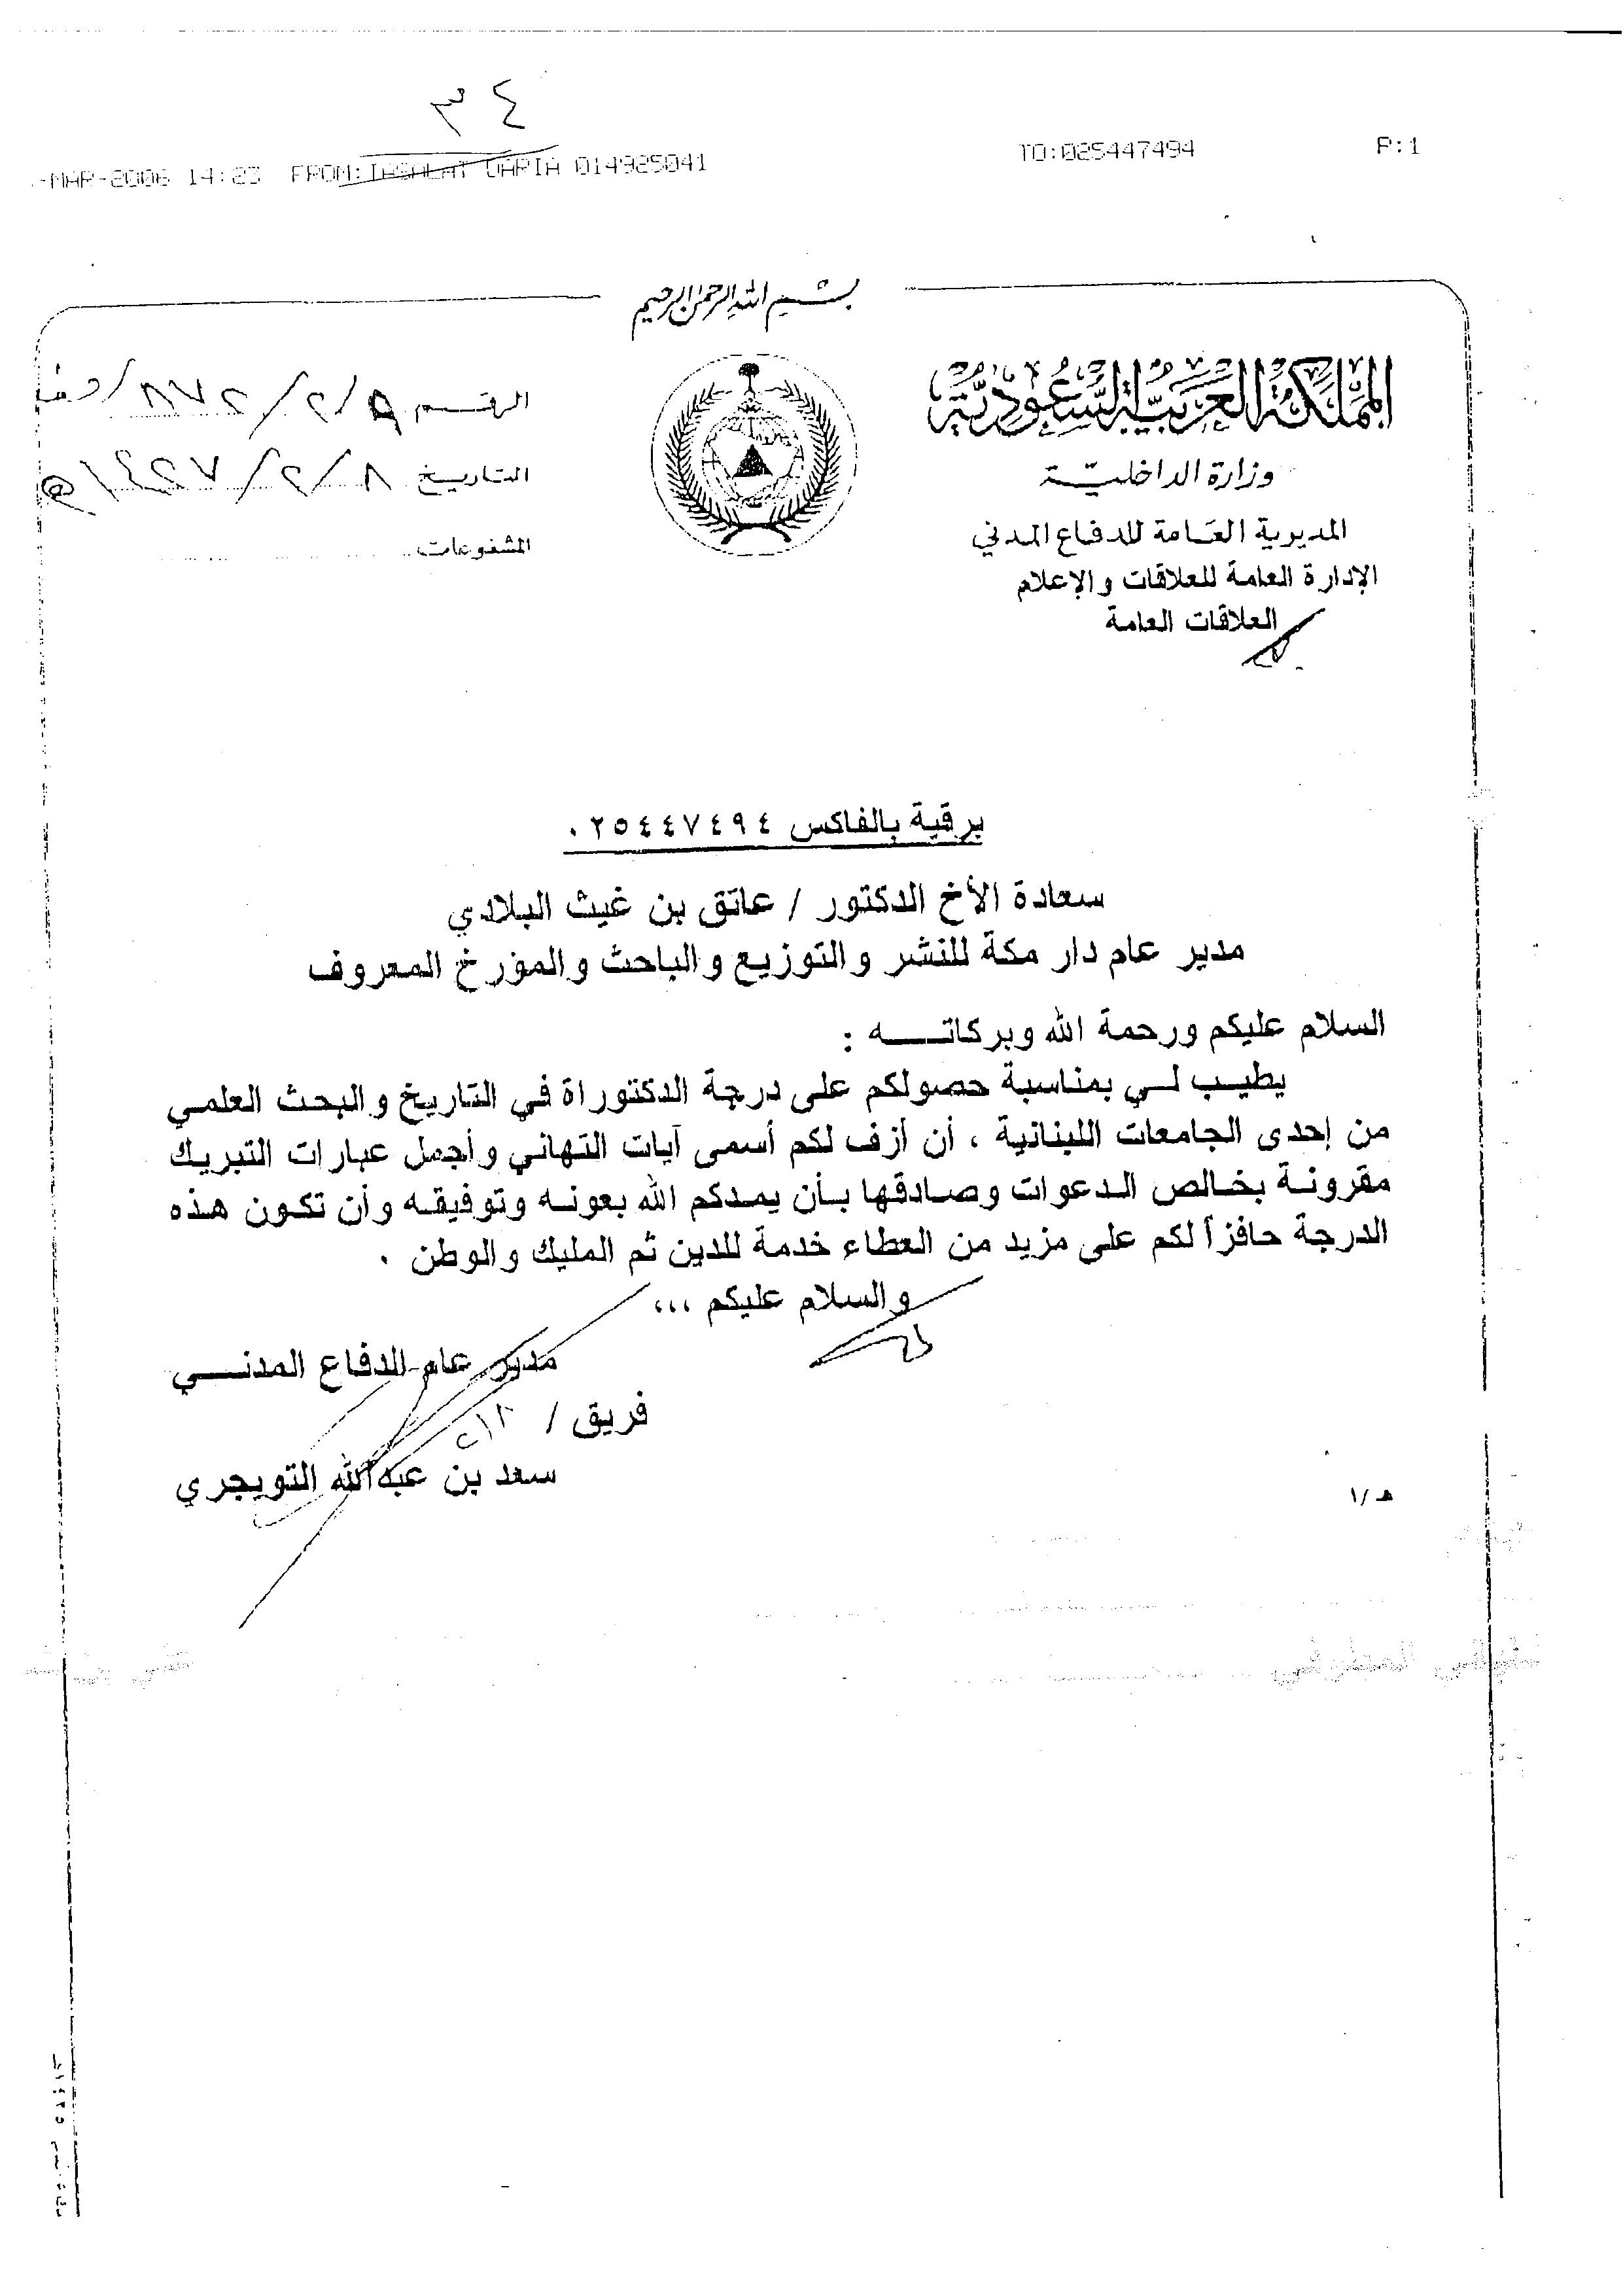 ٣٤
-MAR-2006 14:23 FROM:TASALAT DARIA 014925041 TO:025447494 P:1
بسم الله الرحمن الرحيم
المملكة العربية السعودية
وزارة الداخلية
المديرية العامة للدفاع المدني
الإدارة العامة للعلاقات والإعلام
العلاقات العامة
الرقم
التاريخ ٨/٢/١٤٢٧هـ
المشفوعات
برقية بالفاكس ٠٢٥٤٤٧٤٩٤
سعادة الأخ الدكتور / عاتق بن غيث البلادي
مدير عام دار مكة للنشر والتوزيع والباحث والمؤرخ المعروف
السلام عليكم ورحمة الله وبركاتـــــه :
يطيــب لــي بمناسبة حصولكم على درجة الدكتوراة في التاريخ والبحث العلمي
من إحدى الجامعات اللبنانية ، أن أزف لكم أسمى آيات التهاني وأجمل عبارات التبريك
مقرونـة بخـالص الـدعوات وصـادقها بـأن يمـدكم الله بعونـه وتوفيقـه وأن تكـون هـذه
الدرجة حافزاً لكم على مزيد من العطاء خدمة للدين ثم المليك والوطن .
والسلام عليكم ،،،
مدير عام الدفاع المدنــــي
فريق /
سعد بن عبدالله التويجري
هـ/١